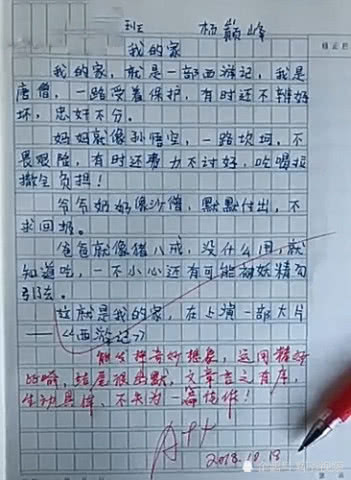 班 杨巅峰
我的家
我的家，就是一部西游记，我是
唐僧，一路受着保护，有时还不辨好
坏，忠奸不分。
妈妈就像孙悟空，一路坎坷，不
畏艰险，有时还费力不讨好，吃喝拉
撒全负担！
爷爷奶奶像沙僧，默默付出，不
求回报。
爸爸就像猪八戒，没什么用，就
知道吃，一不小心还有可能被妖精勾
引去。
这就是我的家，在上演一部大片
——《西游记》
能发挥奇妙想象，运用精妙
比喻，结尾很幽默，文章言之有序，
生动具体，不失为一篇佳作！
A++
2018.10.18